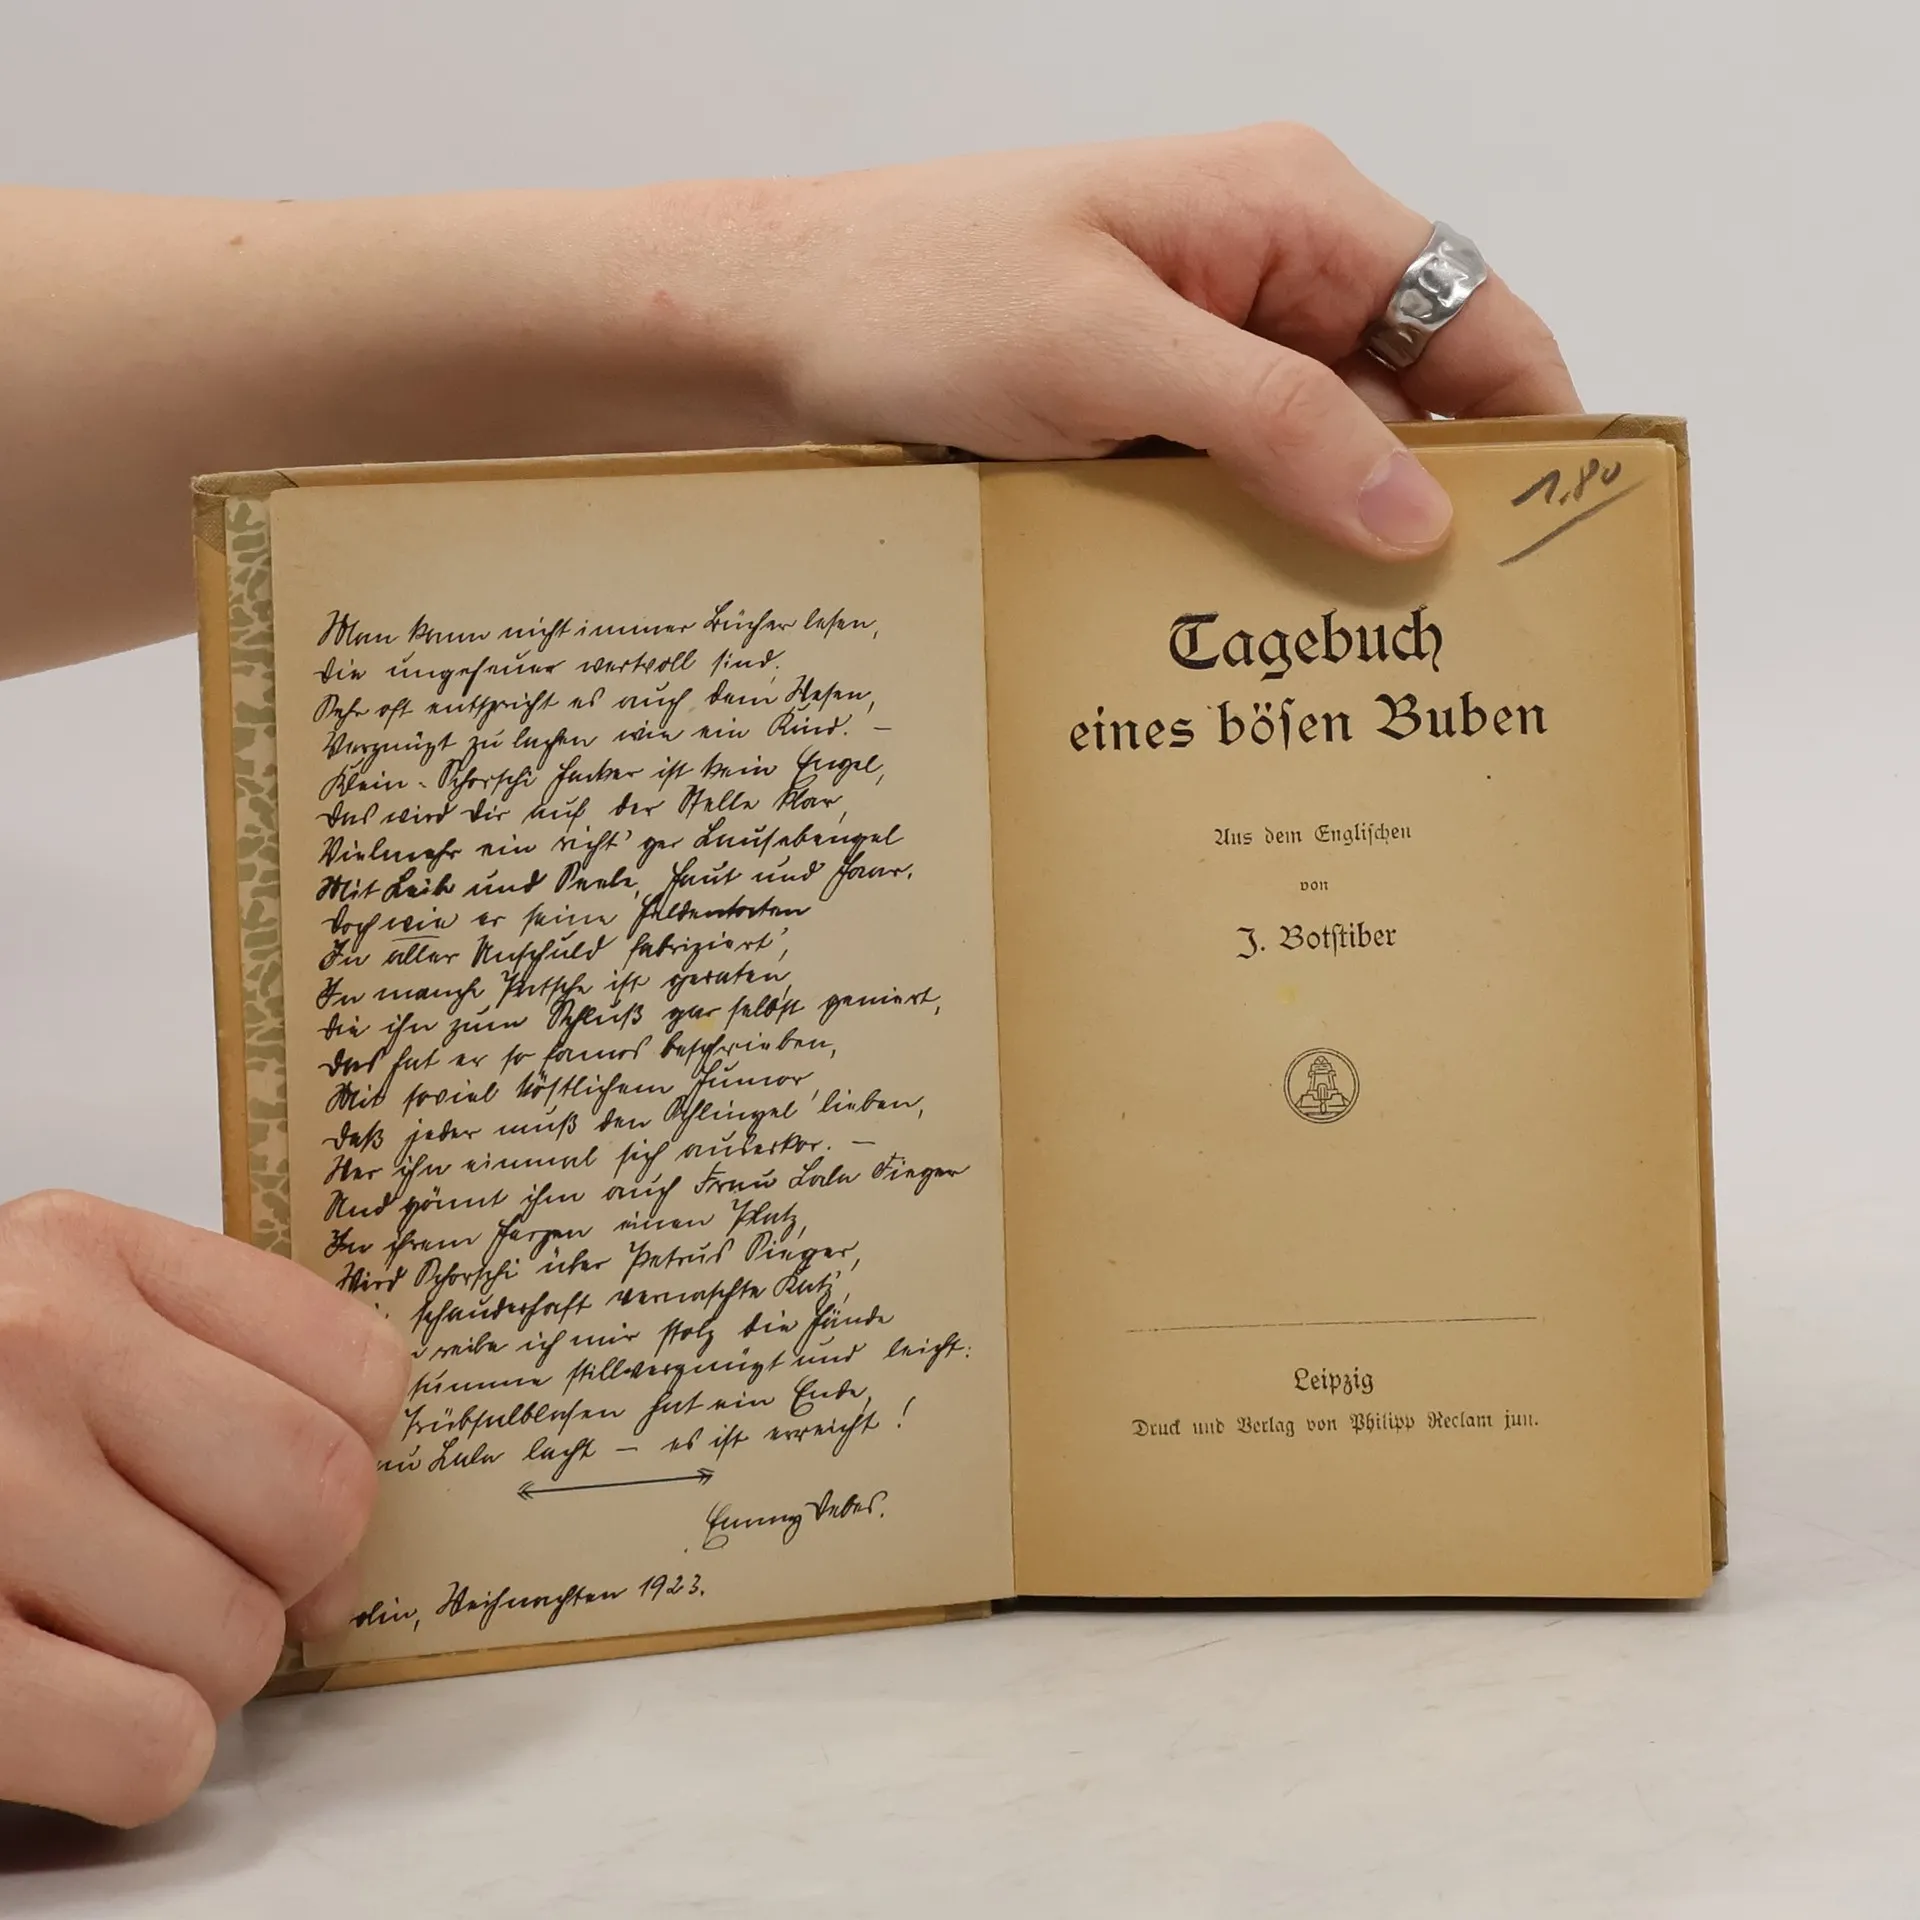 Man kann nicht immer Bücher lesen,
Die ungeheuer wertvoll sind.
Sehr oft entspricht es auch dem Wesen,
Vergnügt zu lachen wie ein Kind. –
Klein-Schorschi Hacker ist kein Engel,
Das wird Dir auf der Stelle klar,
Vielmehr ein richt'ger Lausebengel
Mit Leib und Seele, Haut und Haar.
Doch wie er seine Heldentaten
In aller Unschuld fabriziert',
In manche Patsche ist geraten,
Die ihn zum Schluß gar selbst geniert,
Das hat er so famos beschrieben,
Mit soviel köstlichem Humor,
Daß jeder muß den Schlingel lieben,
Wer ihn einmal sich auserkor. –
Und gönnt ihm auch Frau Lala Fieger
In ihrem Herzen einen Platz,
Wird Schorschi über Petrus Sieger,
schauderhaft vernaschte Katz',
reibe ich mir stolz die Hände
summe stillvergnügt und leicht:
Trübsalblasen hat ein Ende,
Lala lacht – es ist erreicht!
Emmy Debes.
Weihnachten 1923.
1.80
Tagebuch
eines böſen Buben
Aus dem Engliſchen
von
J. Botſtiber
Leipzig
Druck und Verlag von Philipp Reclam jun.